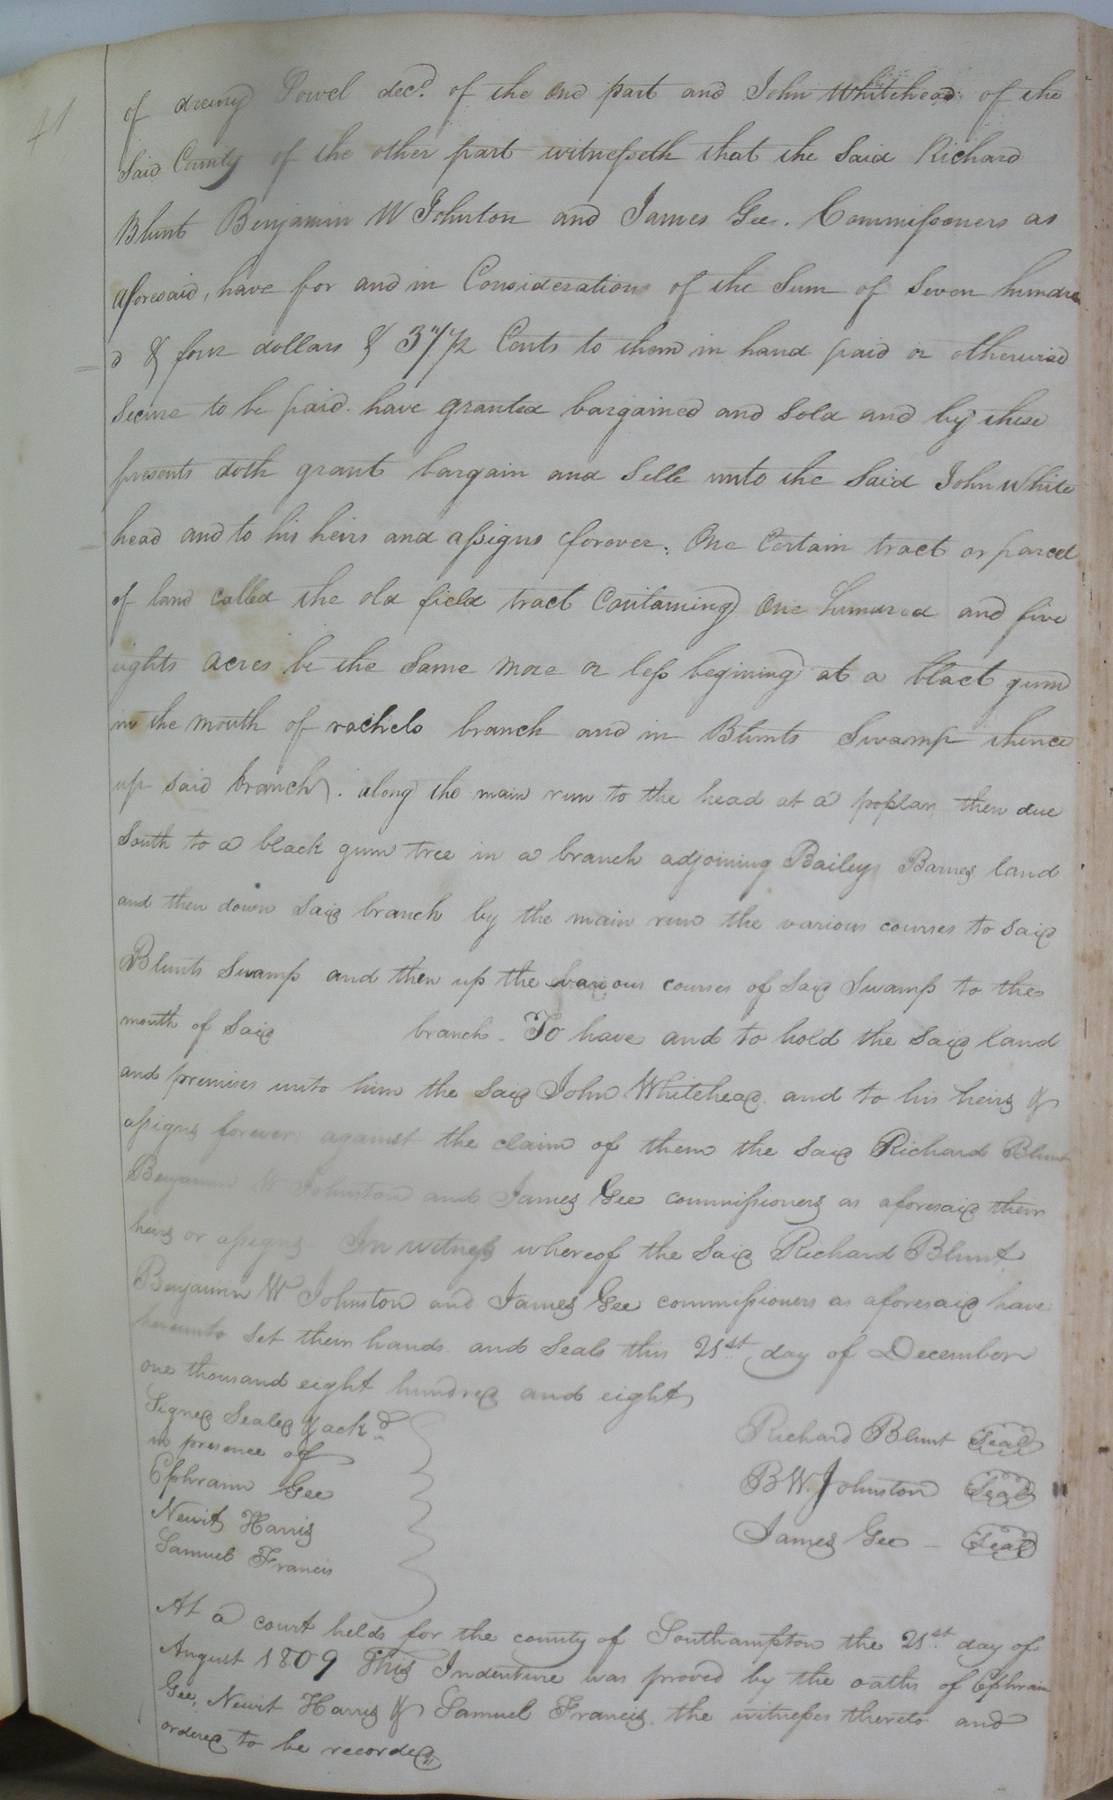 41
of dreury Powel decd. of the one part and John Whitehead of the
Said County of the other part witnesseth that the Said Richard
Blunt Benjamin W Johnston and James Gee. Commissoners as
aforesaid, have for and in Consideration of the Sum of Seven hundre
d & four dollars & 37 1/2 Cents to them in hand paid or otherwise
Secure to be paid have granted bargained and Sold and by these
presents doth grant bargain and Selle unto the Said John White
head and to his heirs and assigns forever. One Certain tract or parcel
of land called the old field tract Containing One hundred and five
eights acres be the Same more or less begining at a blact gum
in the mouth of rachels branch and in Blunts Swamp thence
up said branch. along the main run to the head at a poplar then due
South to a black gum tree in a branch adjoining Bailey Barnes land
and then down said branch by the main run the various courses to said
Blunts Swamp and then up the various courses of said Swamp to the
mouth of said branch. To have and to hold the said land
and premises unto him the said John Whitehead and to his heirs &
assigns forever against the claim of them the said Richard Blunt
Benjamin W Johnston and James Gee commissioners as aforesaid their
heirs or assigns In witness whereof the said Richard Blunt
Benjamin W Johnston and James Gee commissioners as aforesaid have
hereunto Set their hands and Seals this 21st day of December
one thousand eight hundred and eight
Signed Sealed & ackd.
in presence of
Ephraim Gee
Newit Harris
Samuel Francis
Richard Blunt Seal
B W. Johnston Seal
James Gee - Seal
At a court held for the county of Southampton the 21st day of
August 1809 This Indenture was proved by the oaths of Ephraim
Gee, Newit Harris & Samuel Francis the witnesses thereto and
ordered to be recorded